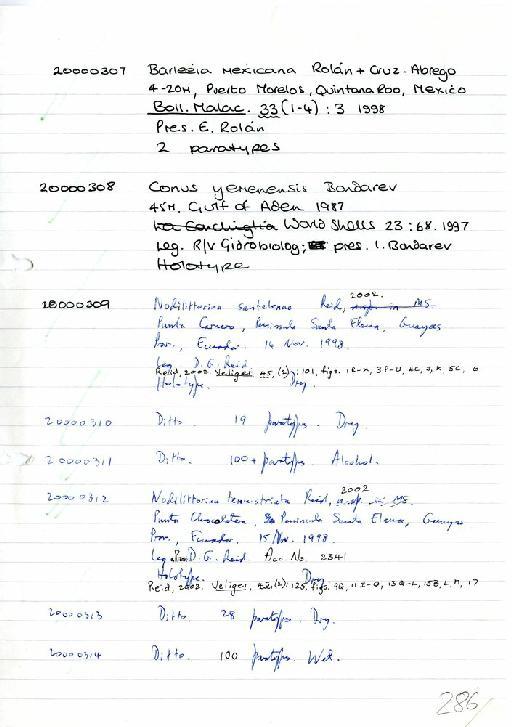 20000307 Barleeia mexicana Rolán + Cruz-Abrego
4-20M, Puerto Morelos, Quintana Roo, Mexico
Boll. Malac. 33 (1-4) : 3 1998
Pres. E. Rolán
2 paratypes
20000308 Conus yemenensis Bondarev
45M. Gulf of Aden 1987
La Conchiglia World Shells 23 : 68. 1997
Leg. R/V Gidrobiolog; pres. I. Bondarev
Holotype
20000309 Nodilittorina santelenae Reid, 2002. MS.
Punta Carnero, Peninsula Santa Elena, Guayas
Prov., Ecuador 14 Nov. 1998
Leg. D. G. Reid
Reid, 2002. Veliger 45, (2): 101, figs.
Holotype. Dry.
20000310 Ditto. 19 paratypes. Dry.
20000311 Ditto. 100+ paratypes. Alcohol.
20000312 Nodilittorina tenuistriata Reid, 2002 MS.
Punta Chocolatera, Peninsula Santa Elena, Guayas
Prov., Ecuador. 15/Nov. 1998
Leg D. G. Reid Acc No. 2341
Holotype. Dry
Reid, 2002. Veliger, 125, figs.
20000313 Ditto. 28 paratypes. Dry.
20000314 Ditto. 100 paratypes. Wet.
286